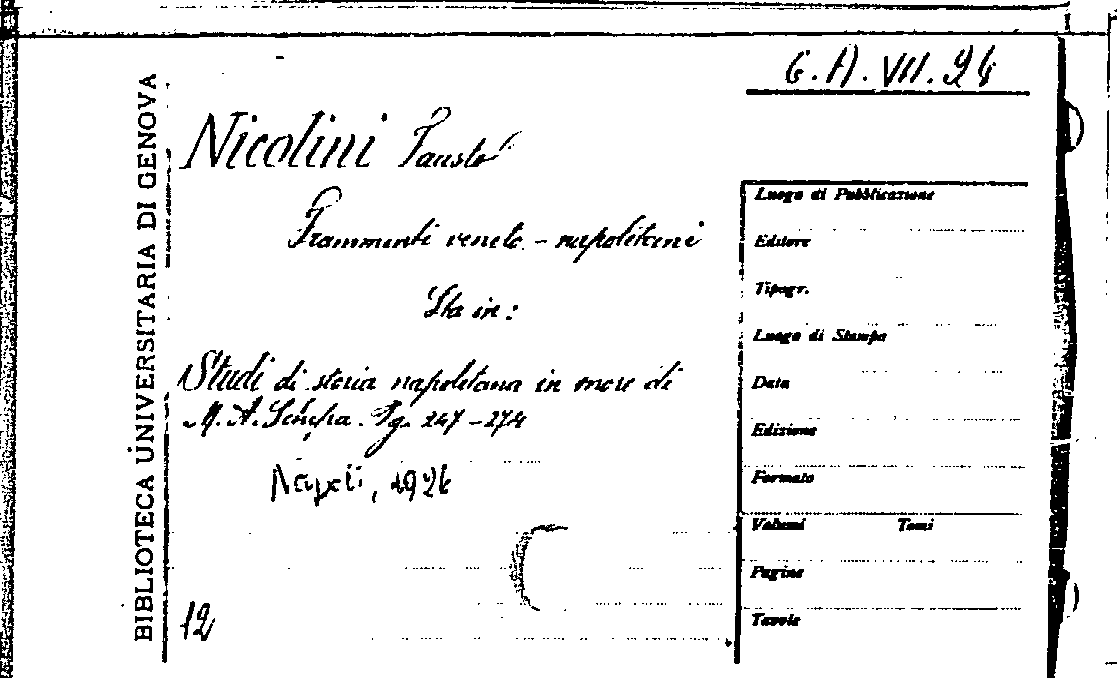 BIBLIOTECA UNIVERSITARIA DI GENOVA
G.A.VII.24
Nicolini Fausto
Frammenti veneto-napoletani
Sta in:
Studi di storia napoletana in onore di
M.A. Schipa. Pg. 247-274
Napoli, 1926
12
Luogo di Pubblicazione
Editore
Tipogr.
Luogo di Stampa
Data
Edizione
Formato
Volumi Tomi
Pagine
Tavole